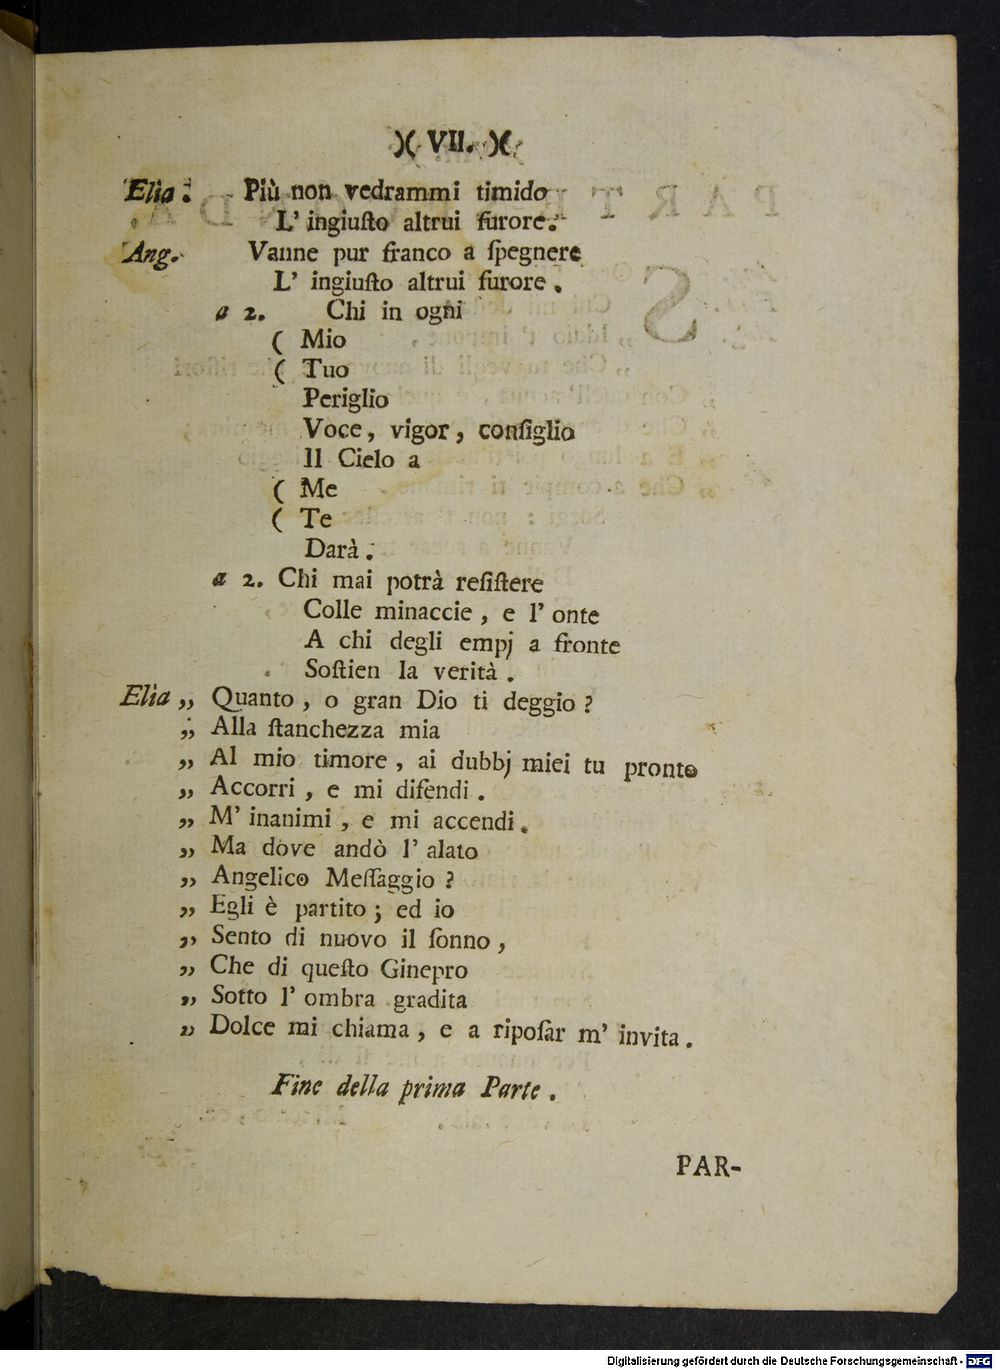 )( VII. )(
Elia. Più non vedrammi timido
L' ingiuſto altrui furore.
Ang. Vanne pur franco a ſpegnere
L' ingiuſto altrui furore.
a 2. Chi in ogni
( Mio
( Tuo
Periglio
Voce, vigor, conſiglio
Il Cielo a
( Me
( Te
Darà.
a 2. Chi mai potrà reſiſtere
Colle minaccie, e l' onte
A chi degli empj a fronte
Soſtien la verità.
Elia „ Quanto, o gran Dio ti deggio?
„ Alla ſtanchezza mia
„ Al mio timore, ai dubbj miei tu pronto
„ Accorri, e mi difendi.
„ M' inanimi, e mi accendi.
„ Ma dove andò l' alato
„ Angelico Meſſaggio?
„ Egli è partito; ed io
„ Sento di nuovo il ſonno,
„ Che di queſto Ginepro
„ Sotto l' ombra gradita
„ Dolce mi chiama, e a ripoſar m' invita.
Fine della prima Parte.
PAR-
Digitalisierung gefördert durch die Deutsche Forschungsgemeinschaft - DFG